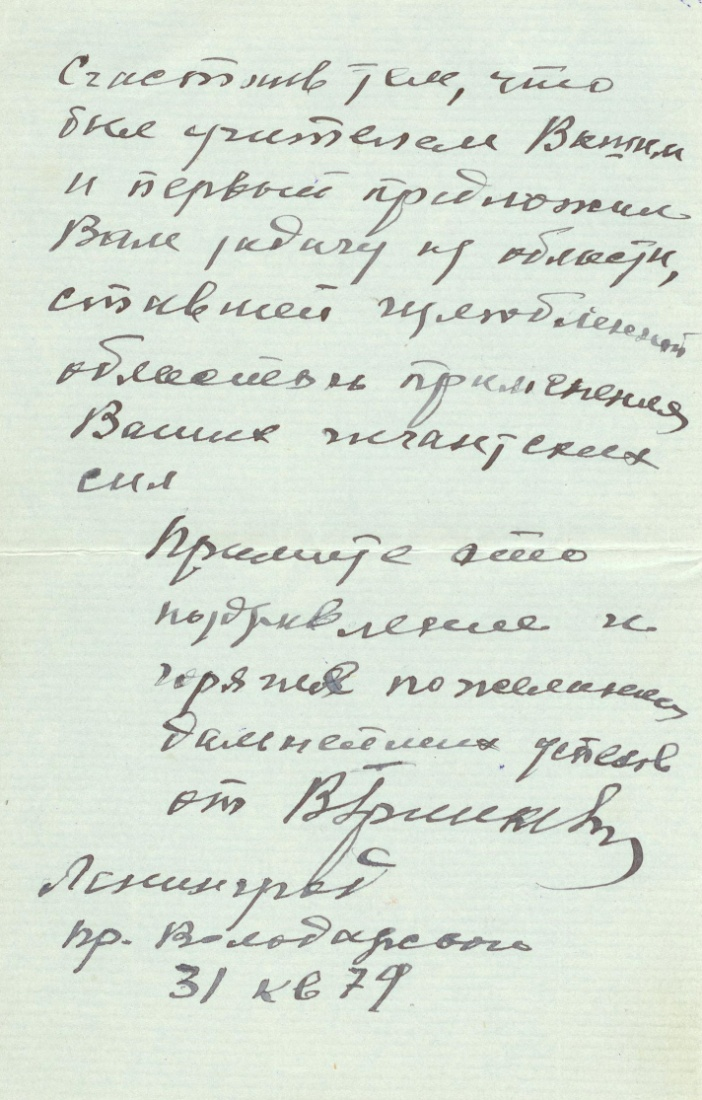 Счастлив тем, что
был учителем Вашим
и первый предложил
Вам задачу из области,
ставшей излюбленной
областью применения
Ваших гигантских
сил
Примите это
поздравление и
горячия пожелания
дальнейших успехов
от
Ленинград
пр. Володарского
31 кв 79